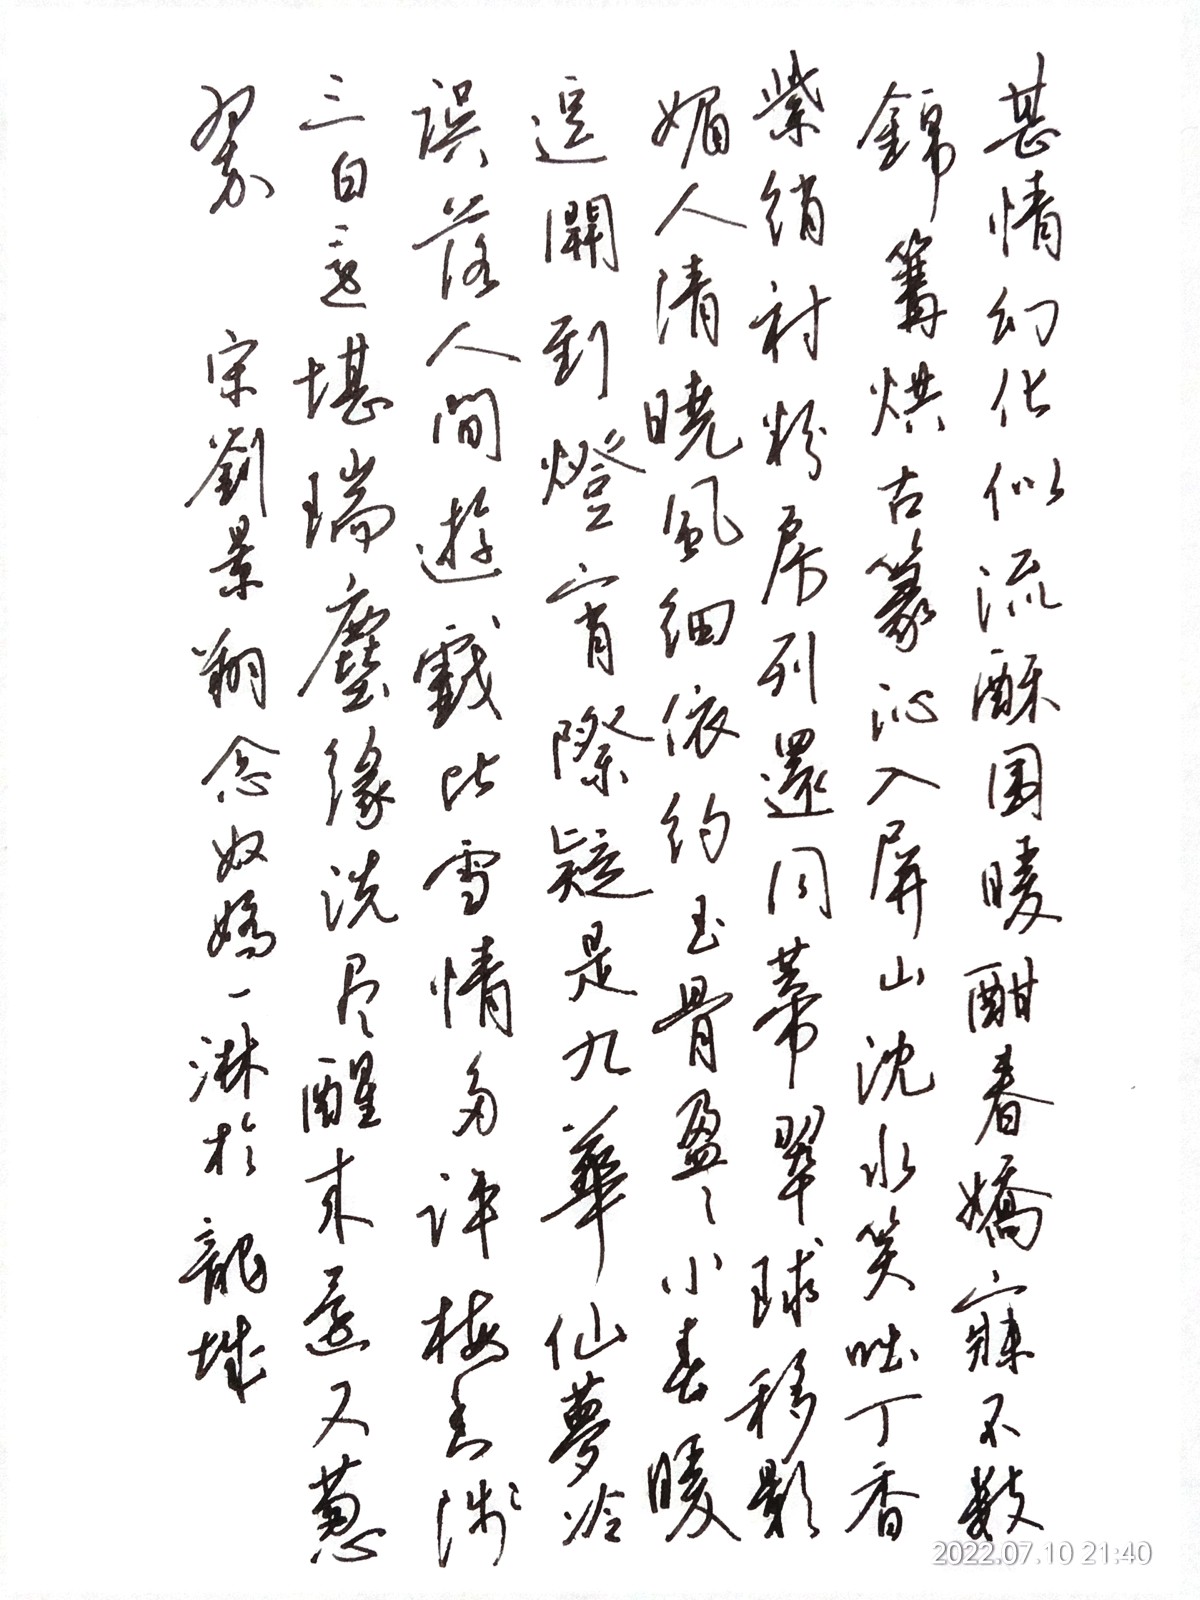 甚情幻化似流酥围暖酣春嬌寐不數
錦篝烘古篆沁入屏山沈水笑咄丁香
紫绡衬粉房列還同蒂翠球移影
媚人清曉風细依约玉骨盈〻小春暖
逗開到燈宵際疑是九華仙夢冷
誤落人間遊戲比雪情多评梅香淺
三白還堪瑞塵缘洗尽醒来還又葱
翠 宋劉景翔念奴嬌一淋於龍城
2022.07.10 21:40